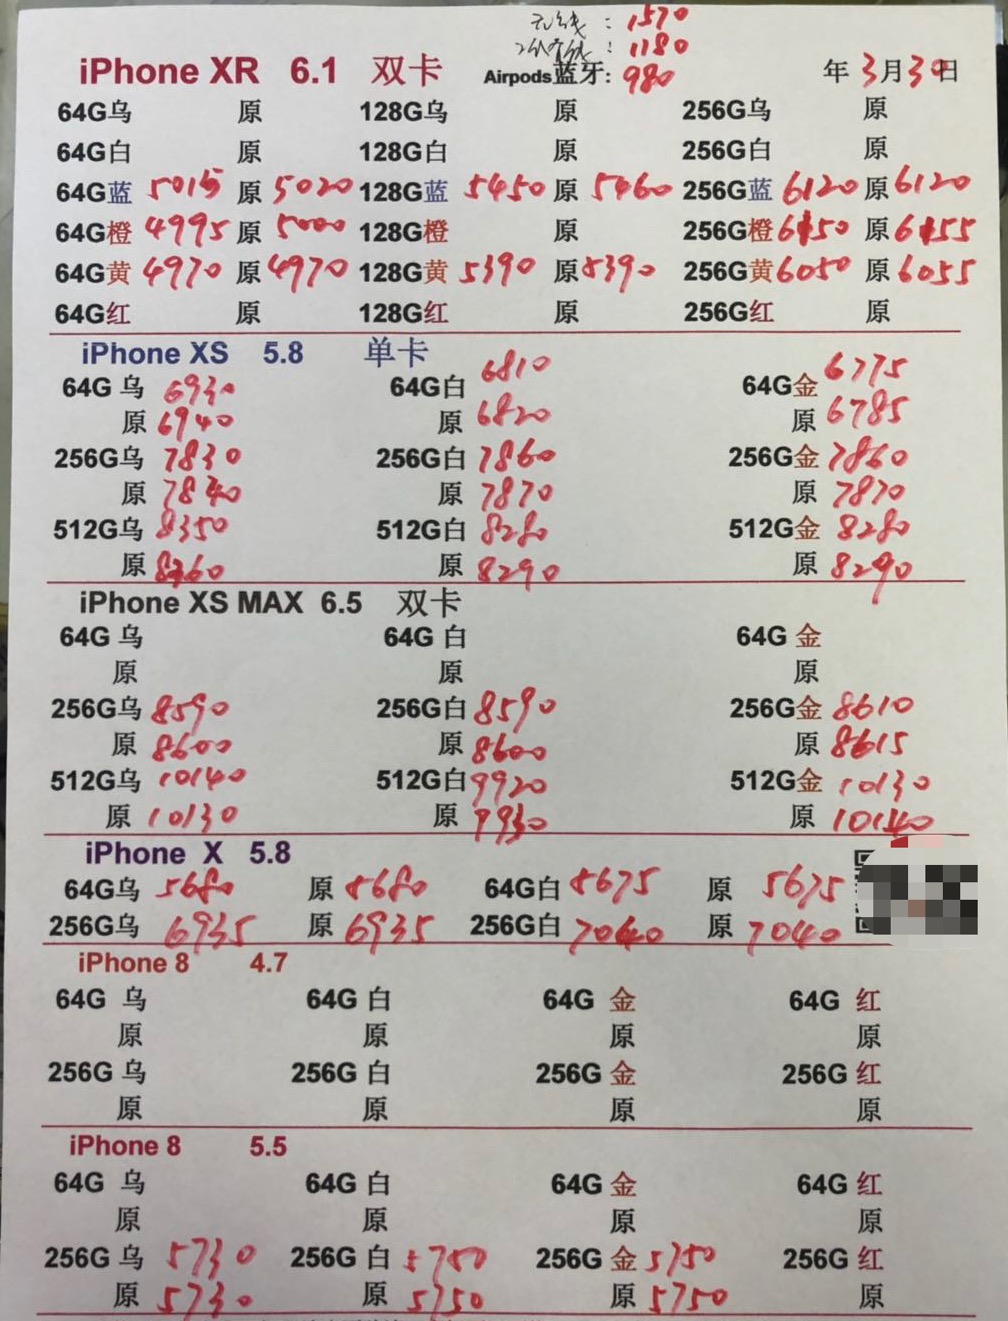 无线：1570
二代有线：1180
iPhone XR 6.1 双卡 Airpods蓝牙：980 年3月30日
64G乌 原 128G乌 原 256G乌 原
64G白 原 128G白 原 256G白 原
64G蓝 5015 原 5020 128G蓝 5450 原 5460 256G蓝 6120 原 6120
64G橙 4995 原 5000 128G橙 原 256G橙 6150 原 6155
64G黄 4970 原 4970 128G黄 5390 原 5390 256G黄 6050 原 6055
64G红 原 128G红 原 256G红 原
iPhone XS 5.8 单卡
64G 乌 6930 64G白 6810 64G金 6775
原 6940 原 6820 原 6785
256G乌 7830 256G白 7860 256G金 7860
原 7840 原 7870 原 7870
512G乌 8350 512G白 8280 512G金 8280
原 8360 原 8290 原 8290
iPhone XS MAX 6.5 双卡
64G 乌 64G 白 64G 金
原 原 原
256G乌 8590 256G白 8590 256G金 8610
原 8600 原 8600 原 8615
512G乌 10140 512G白 9920 512G金 10130
原 10130 原 9930 原 10140
iPhone X 5.8
64G乌 5680 原 5680 64G白 5675 原 5675
256G乌 6935 原 6935 256G白 7040 原 7040
iPhone 8 4.7
64G 乌 64G 白 64G 金 64G 红
原 原 原 原
256G 乌 256G 白 256G 金 256G 红
原 原 原 原
iPhone 8 5.5
64G 乌 64G 白 64G 金 64G 红
原 原 原 原
256G 乌 5730 256G 白 5750 256G 金 5750 256G 红
原 5730 原 5750 原 5750 原